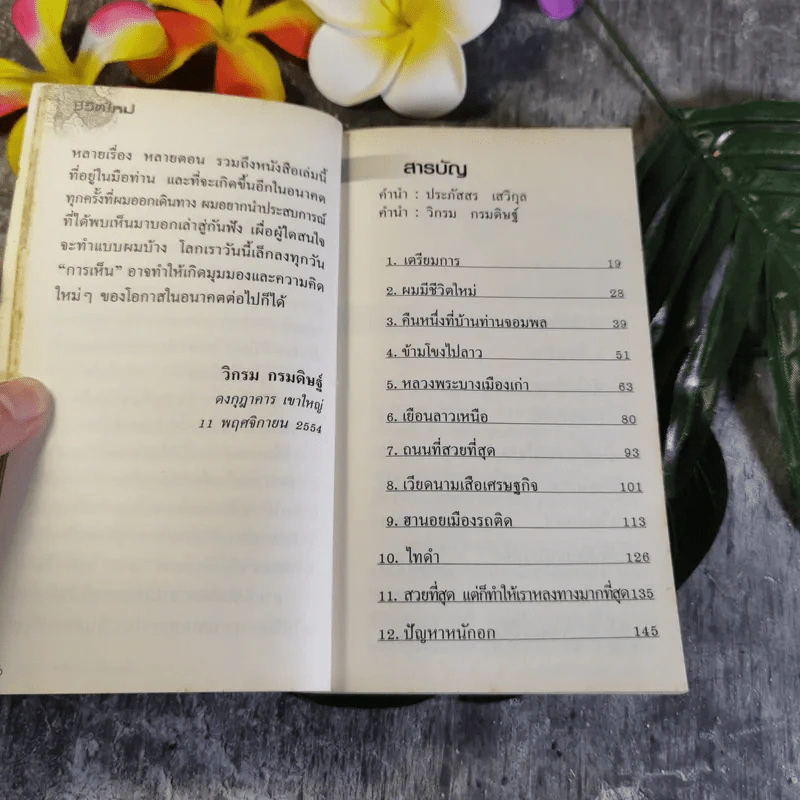 ชีวิตใหม่
หลายเรื่อง หลายตอน รวมถึงหนังสือเล่มนี้
ที่อยู่ในมือท่าน และที่จะเกิดขึ้นอีกในอนาคต
ทุกครั้งที่ผมออกเดินทาง ผมอยากนำประสบการณ์
ที่ได้พบเห็นมาบอกเล่าสู่กันฟัง เผื่อผู้ใดสนใจ
จะทำแบบผมบ้าง โลกเราวันนี้เล็กลงทุกวัน
“การเห็น” อาจทำให้เกิดมุมมองและความคิด
ใหม่ๆ ของโอกาสในอนาคตต่อไปก็ได้
วิกรม กรมดิษฐ์
ดงกุฎาคาร เขาใหญ่
11 พฤศจิกายน 2554
สารบัญ
คำนำ : ประภัสสร เสวิกุล
คำนำ : วิกรม กรมดิษฐ์
1. เตรียมการ 19
2. ผมมีชีวิตใหม่ 28
3. คืนหนึ่งที่บ้านท่านจอมพล 39
4. ข้ามโขงไปลาว 51
5. หลวงพระบางเมืองเก่า 63
6. เยือนลาวเหนือ 80
7. ถนนที่สวยที่สุด 93
8. เวียดนามเสือเศรษฐกิจ 101
9. ฮานอยเมืองรถติด 113
10. ไทดำ 126
11. สวยที่สุด แต่ก็ทำให้เราหลงทางมากที่สุด 135
12. ปัญหาหนักอก 145